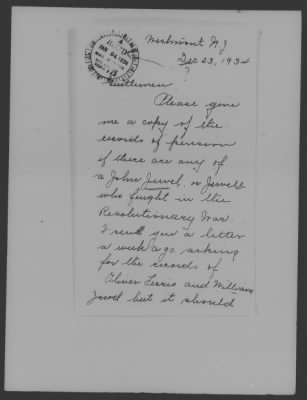 Westmont N.J
Dec 23, 1934
?
Gentlemen.
Please give
me a copy of the
records of pension
if there are any of
a John Jewel or Jewell
who fought in the
Revolutionary War.
I send you a letter
a week ago asking
for the records of
Oliver Ferris and William
Jewel but it should